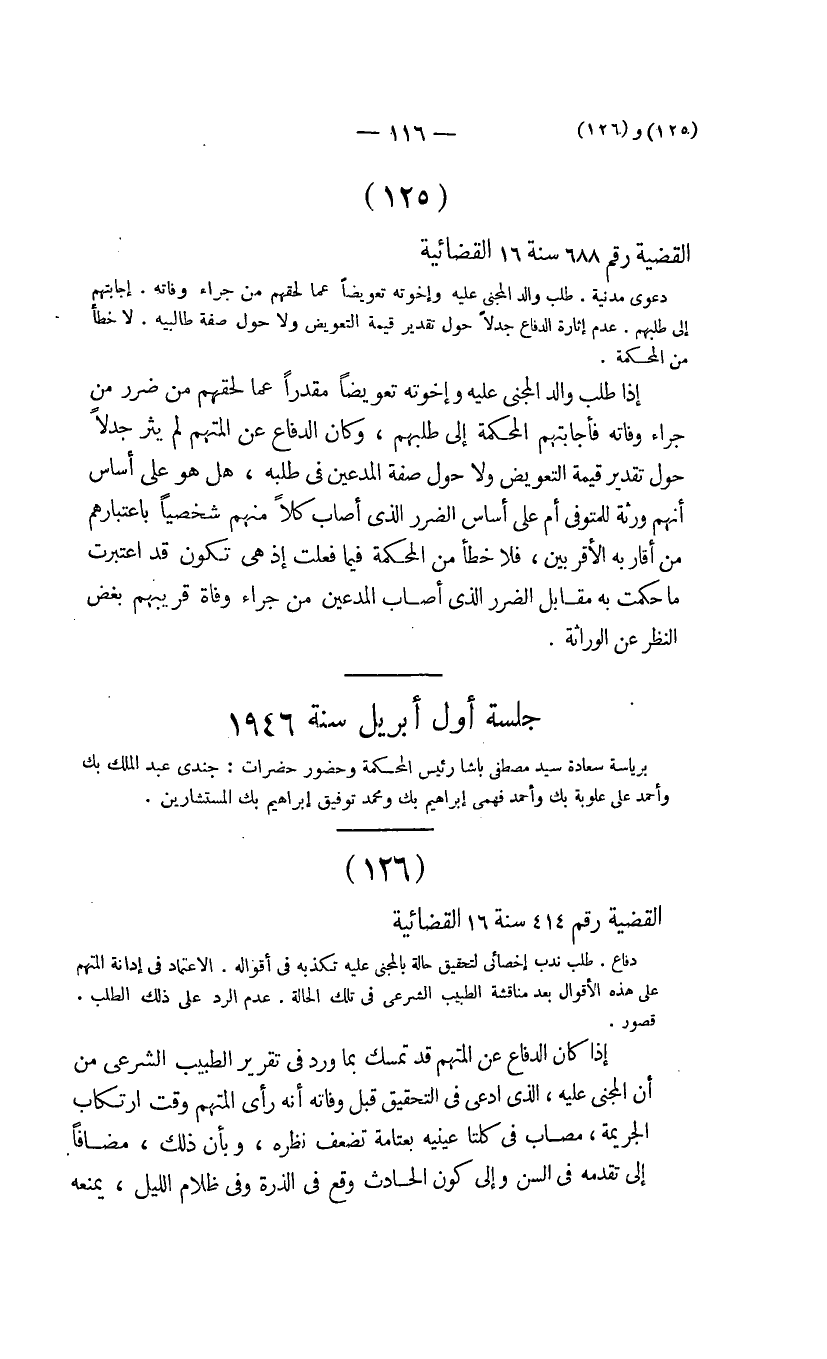 (١٢٥) و (١٢٦) — ١١٦ —
(١٢٥)
القضية رقم ٦٨٨ سنة ١٦ القضائية
دعوى مدنية . طلب والد المجنى عليه وإخوته تعويضاً عما لحقهم من جراء وفاته . إجابتهم
إلى طلبهم . عدم إثارة الدفاع جدلاً حول تقدير قيمة التعويض ولا حول صفة طالبيه . لا خطأ
من المحكمة .
إذا طلب والد المجنى عليه وإخوته تعويضاً مقدراً عما لحقهم من ضرر من
جراء وفاته فأجابتهم المحكمة إلى طلبهم ، وكان الدفاع عن المتهم لم يثر جدلاً
حول تقدير قيمة التعويض ولا حول صفة المدعين فى طلبه ، هل هو على أساس
أنهم ورثة للمتوفى أم على أساس الضرر الذى أصاب كلاً منهم شخصياً باعتبارهم
من أقاربه الأقربين ، فلا خطأ من المحكمة فيما فعلت إذ هى تكون قد اعتبرت
ما حكمت به مقابل الضرر الذى أصاب المدعين من جراء وفاة قريبهم بغض
النظر عن الوراثة .
جلسة أول أبريل سنة ١٩٤٦
برياسة سعادة سيد مصطفى باشا رئيس المحكمة وحضور حضرات : جندى عبد الملك بك
وأحمد على علوبة بك وأحمد فهمى إبراهيم بك ومحمد توفيق إبراهيم بك المستشارين .
(١٢٦)
القضية رقم ٤١٤ سنة ١٦ القضائية
دفاع . طلب ندب إخصائى لتحقيق حالة بالمجنى عليه تكذبه فى أقواله . الاعتماد فى إدانة المتهم
على هذه الأقوال بعد مناقشة الطبيب الشرعى فى تلك الحالة . عدم الرد على ذلك الطلب .
قصور .
إذا كان الدفاع عن المتهم قد تمسك بما ورد فى تقرير الطبيب الشرعى من
أن المجنى عليه ، الذى ادعى فى التحقيق قبل وفاته أنه رأى المتهم وقت ارتكاب
الجريمة ، مصاب فى كلتا عينيه بعتامة تضعف نظره ، وبأن ذلك ، مضافاً
إلى تقدمه فى السن وإلى كون الحادث وقع فى الذرة وفى ظلام الليل ، يمنعه